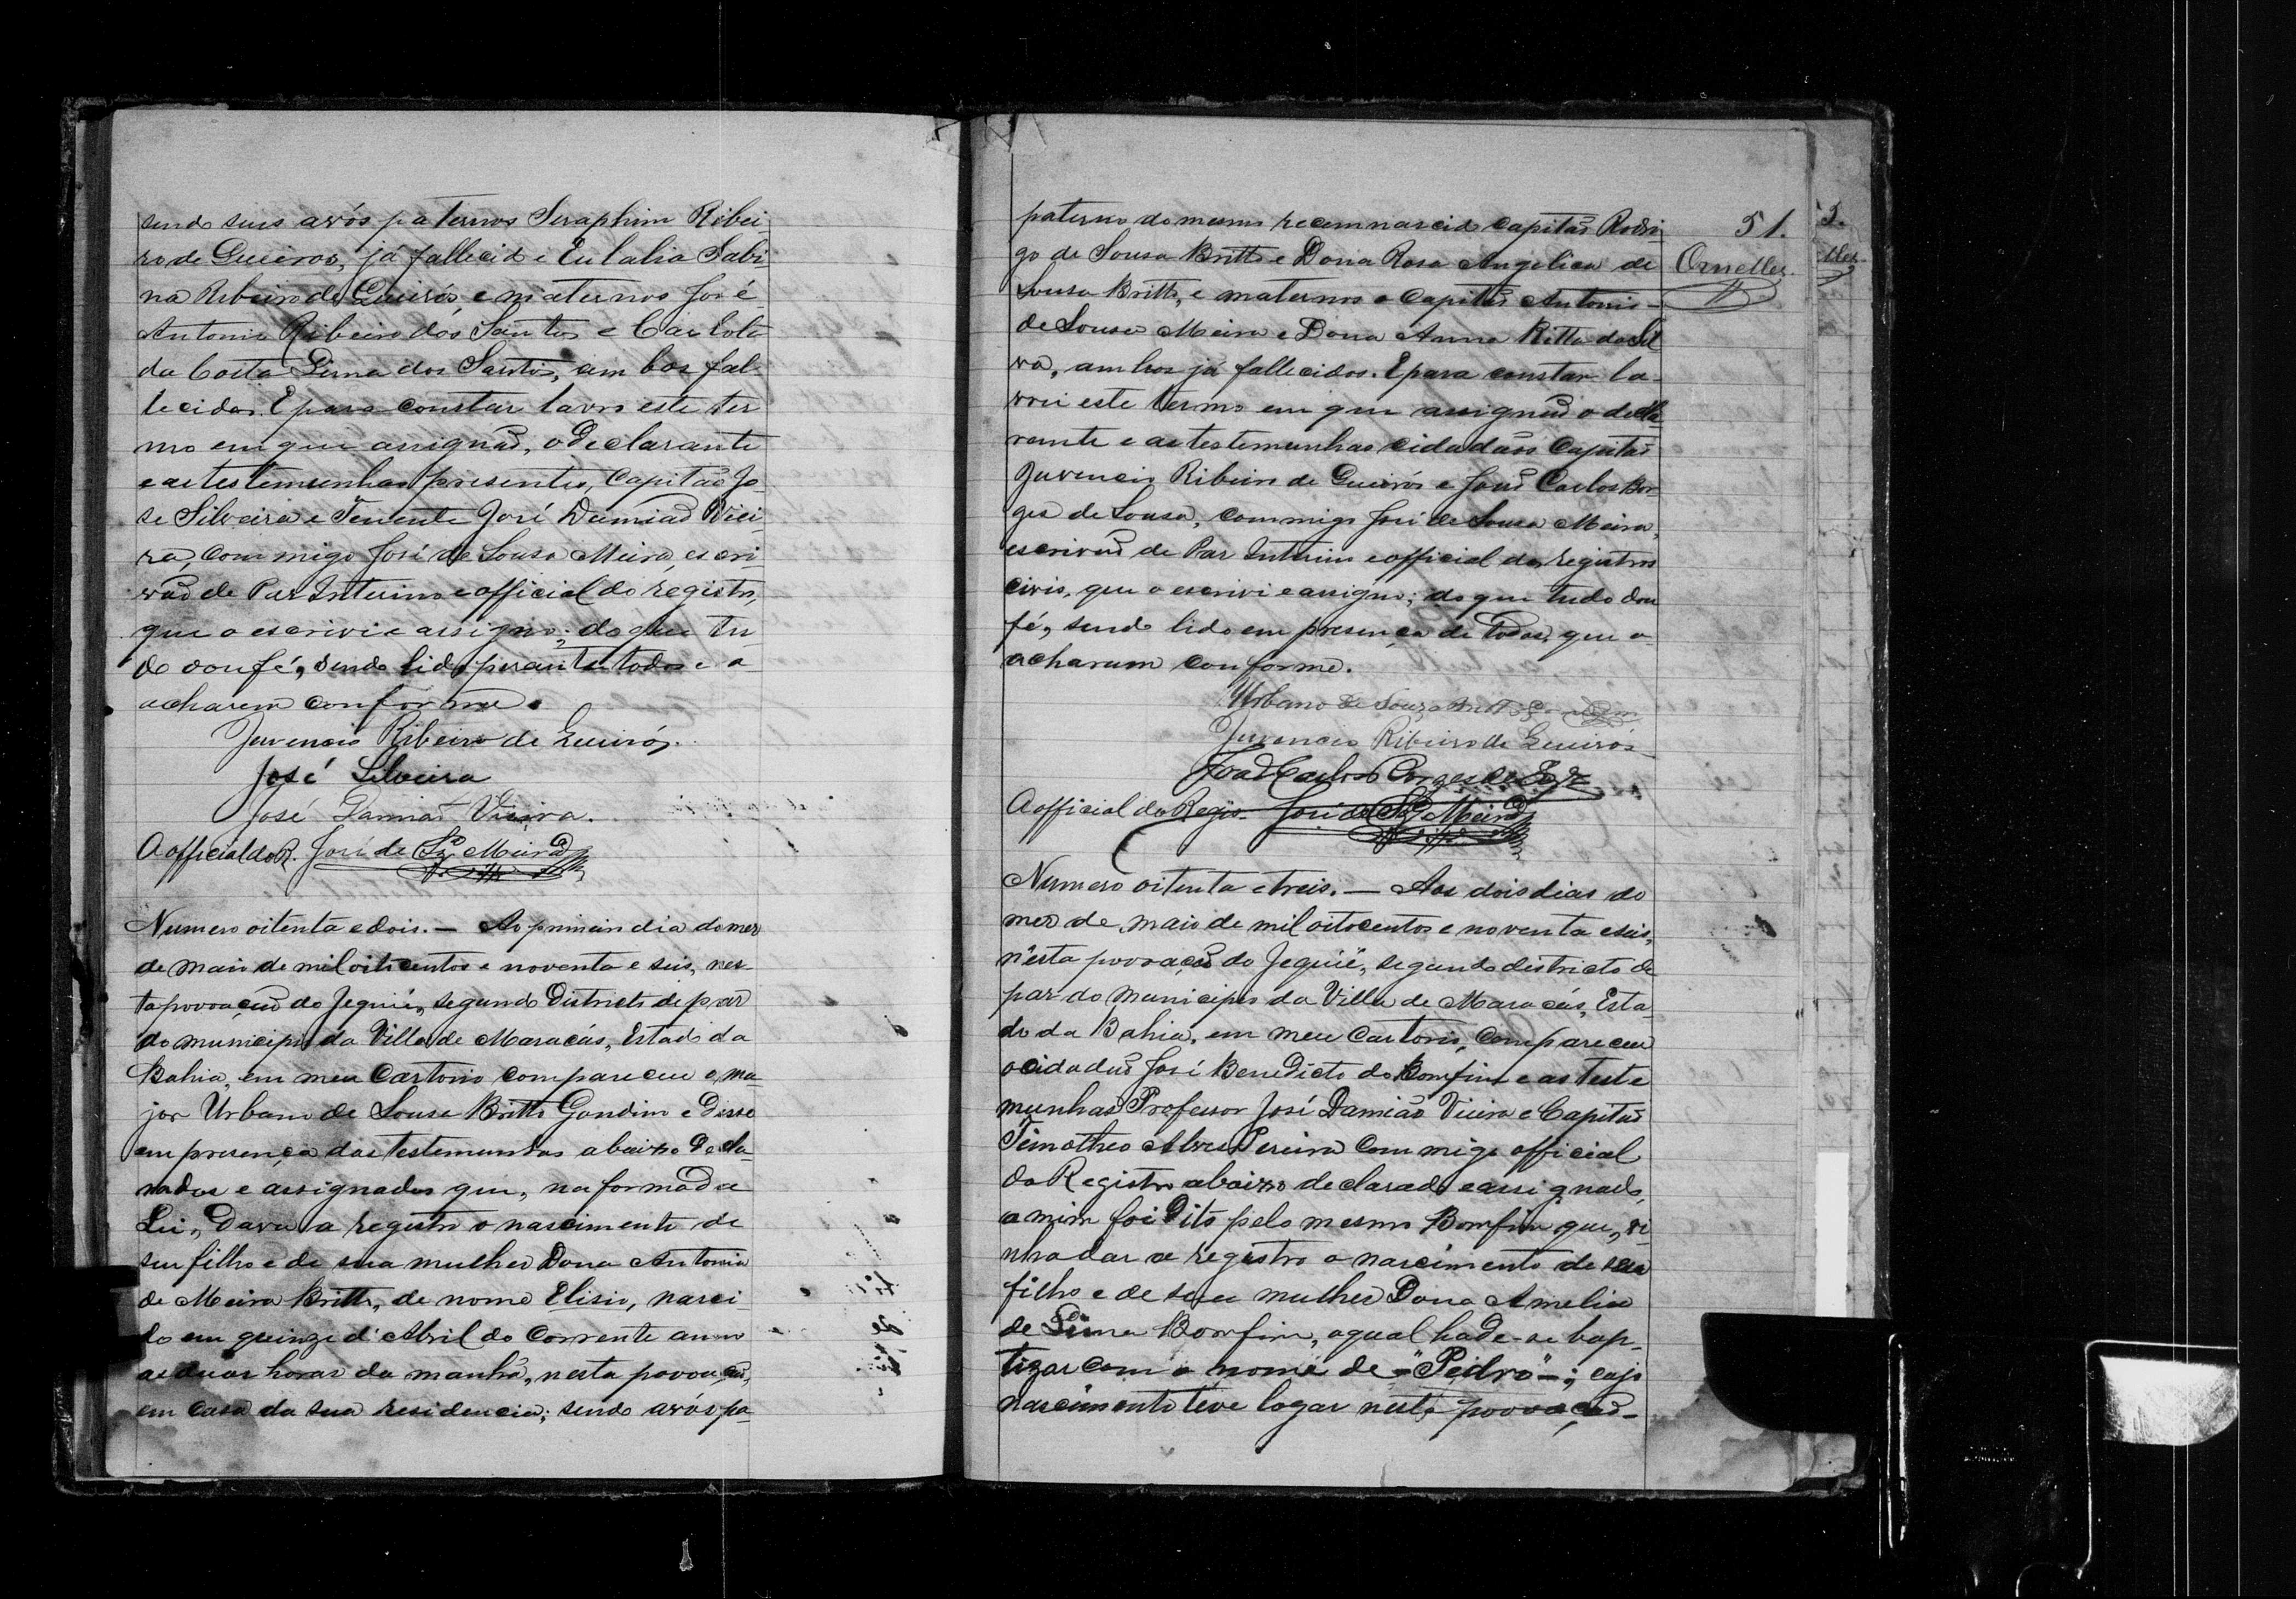 sendo seus avós paternos Seraphim Ribei-
ro de Queiros, já fallecido e Eulalia Sabi-
na Ribeiro de Queirós, e maternos José
Antonio Ribeiro dos Santos e Carlota
da Costa Lima dos Santos, ambos fal-
lecidos. E para constar lavro este ter
mo em que assignão, o declarante
e as testemunhas presentes, Capitão Jo-
se Silveira e Tenente José Damião Viei-
ra, commigo José de Sousa Meira, escri-
vão de Paz Interino e official do registro,
que o escrivi e assigno; do que tu-
do dou fé, sendo lido perante todos e o
acharem conforme.
Juvencio Ribeiro de Queirós.
José Silveira
José Damião Vieira.
O official do R. José de Sza Meira
Numero oitenta e dois. — Ao primeiro dia do mez
de maio de mil oitocentos e noventa e seis, nes-
ta povoação do Jequié, segundo districto de paz
do municipio da Villa de Maracás, Estado da
Bahia, em meu Cartorio compareceu o ma-
jor Urbano de Sousa Britto Gondim e disse
em presença das testemunhas abaixo decla-
radas e assignadas que, na forma da
Lei, dava a registro o nascimento de
seu filho e de sua mulher Dona Antonia
de Meira Britto, de nome Elisio, nasci-
do em quinze d'Abril do corrente anno
as duas horas da manhã, nesta povoação,
em casa da sua residencia; sendo avós pa-
51.
Ornelles
paterno do mesmo recemnascido capitão Rodri-
go de Sousa Britto e Dona Rosa Angelica de
Sousa Britto, e maternos o Capitão Antonio
de Sousa Meira e Dona Anna Ritta da Sil
va, ambos já fallecidos. E para constar la-
vrei este termo em que assignão o decla
rante e as testemunhas cidadãos Capitão
Juvencio Ribeiro de Queirós e João Carlos Bor-
ges de Sousa, commigo José de Sousa Meira,
escrivão de Paz Interino e official dos registros
civis, que o escrivi e assigno; do que tudo dou
fé, sendo lido em presença de todos, que o
acharam conforme.
Urbano de Souza Britto Gondim
Juvencio Ribeiro de Queirós
João Carlos Borges de Souza
O official do Regis. José de Sza Meira
Numero oitenta e treis. — Aos dois dias do
mez de maio de mil oitocentos e noventa e seis,
n'esta povoação do Jequié, segundo districto de
paz do municipio da Villa de Maracás, Esta-
do da Bahia, em meu Cartorio, compareceu
o cidadão José Benedicto do Bomfim e as teste
munhas Professor José Damião Vieira e Capitão
Timotheo Alves Pereira commigo official
do Registro abaixo declarado e assignado,
a mim foi dito pelo mesmo Bomfim que, vi-
nha dar a registro o nascimento de seu
filho e de sua mulher Dona Amelia
de Lima Bomfim, o qual hade-se bap-
tizar com o nome de -"Pedro"-; cujo
nascimento teve logar nesta povoação